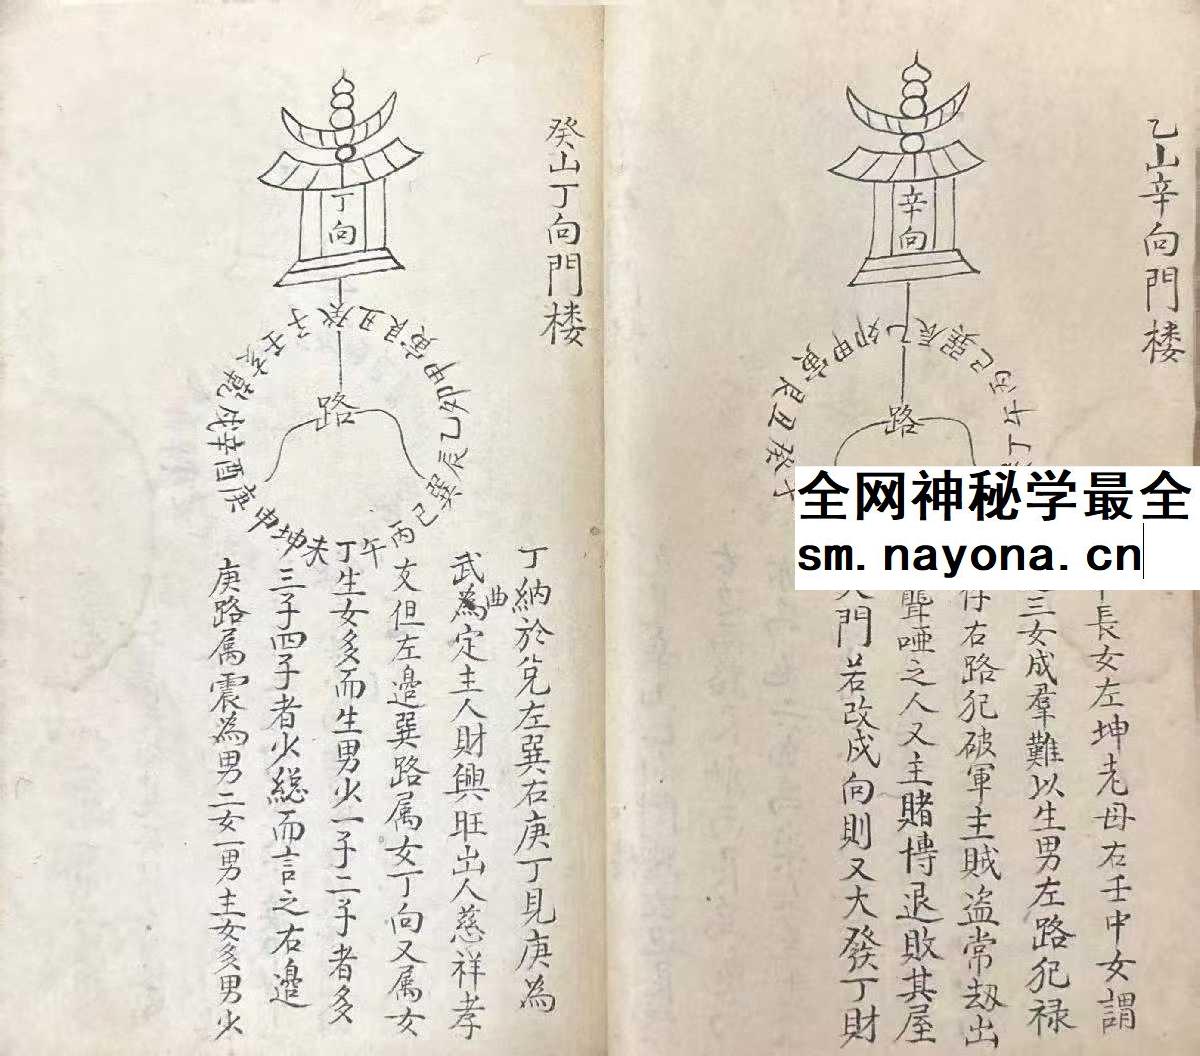 乙山辛向門楼
辛向
癸丑艮寅甲卯乙辰巽巳丙午丁
路
全网神秘学最全
sm.nayona.cn
長女左坤老母右壬中女謂
三女成羣難以生男左路犯禄
存右路犯破軍主賊盗常刼出
聾啞之人又主賭博退敗其屋
門若改戍向則又大發丁財
癸山丁向門楼
丁向
壬子癸丑艮寅甲卯乙辰巽巳丙午丁未坤申庚酉辛戌乾亥
路
丁納於兌左巽右庚丁見庚為
武曲為定主人財興旺出人慈祥孝
友但左邉巽路属女丁向又属女
丁生女多而生男少一子二子者多
三子四子者少縂而言之右邉
庚路属震為男二女一男主女多男少